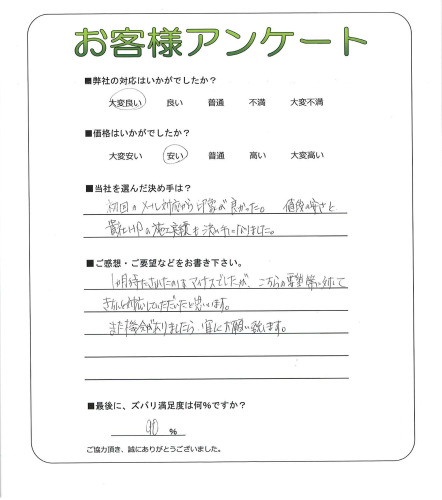 お客様アンケート
■弊社の対応はいかがでしたか？
大変良い 良い 普通 不満 大変不満
■価格はいかがでしたか？
大変安い 安い 普通 高い 大変高い
■当社を選んだ決め手は？
初回のメール対応から印象が良かった。 値段の安さと
貴社HPの施工実績も決め手になりました。
■ご感想・ご要望などをお書き下さい。
1ヶ月待たされたのはマイナスでしたが、こちらの要望等に対して
きちんと対応していただいたと思います。
また機会がありましたら、宜しくお願い致します。
■最後に、ズバリ満足度は何％ですか？
90 ％
ご協力頂き、誠にありがとうございました。